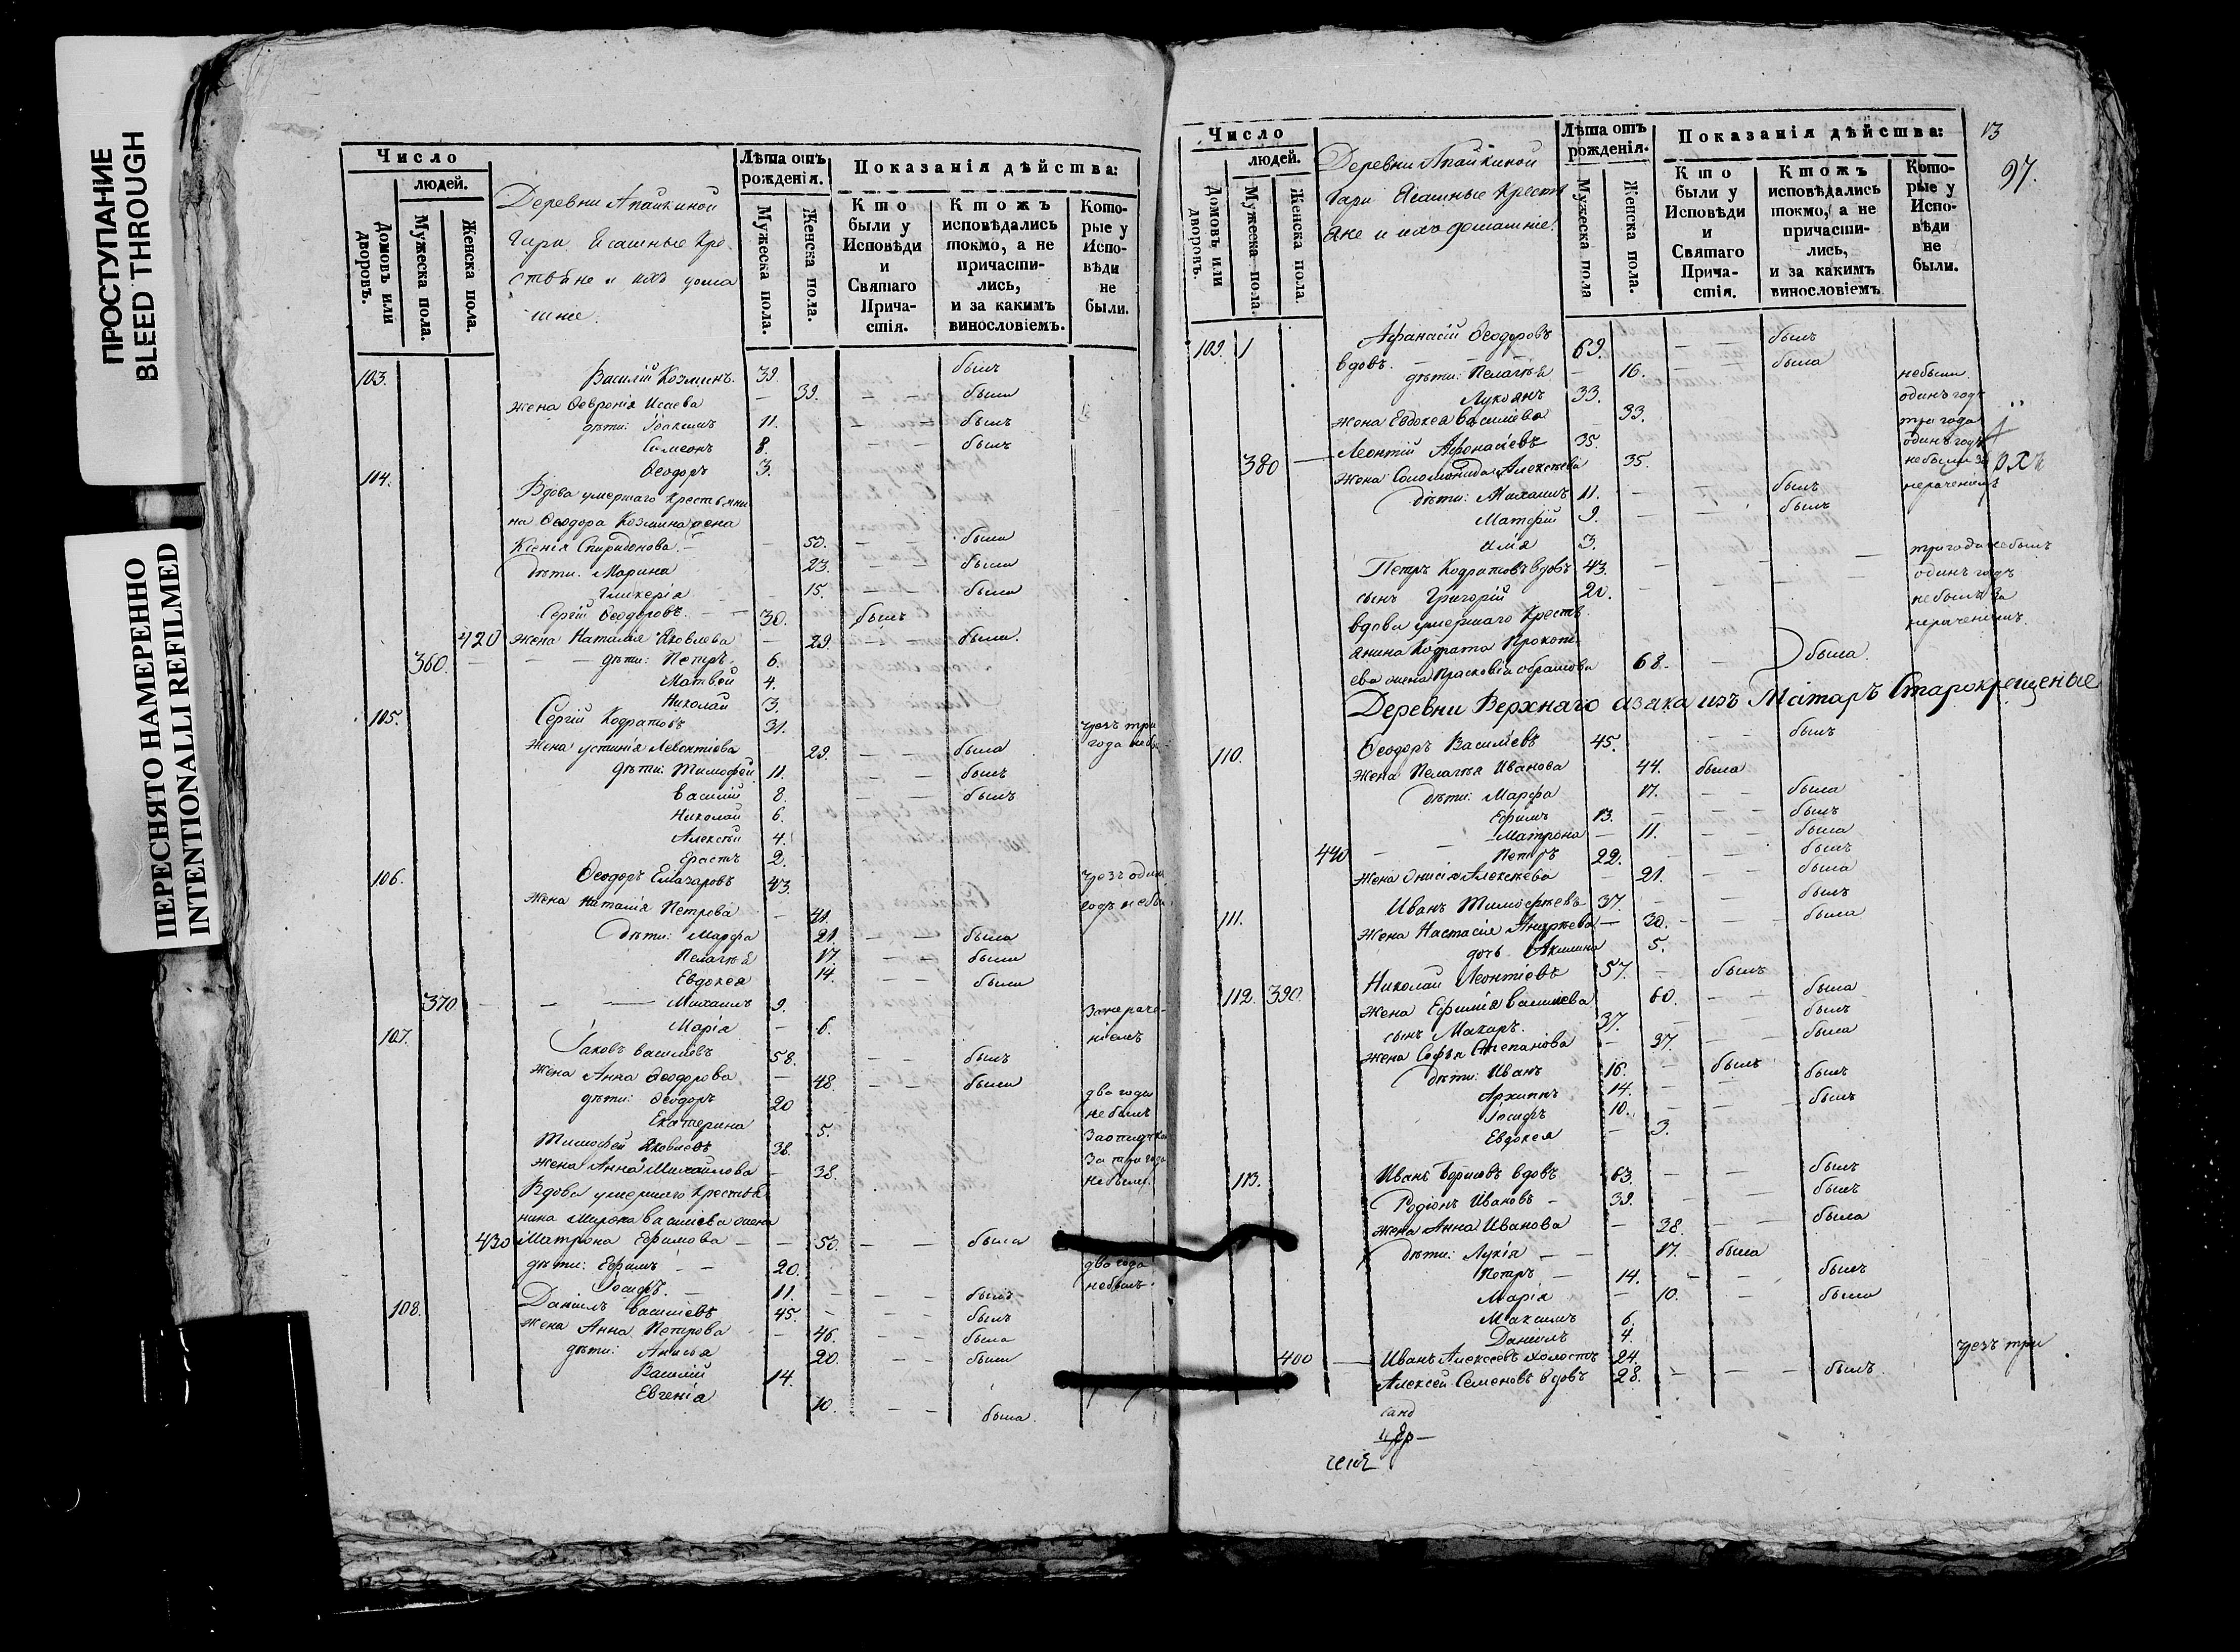 ПРОСТУПАНИЕ
BLEED THROUGH
ПЕРЕСНЯТО НАМЕРЕННО
INTENTIONALLI REFILMED
Число
людей.
Домовъ или дворовъ.
Мужеска пола
Женска пола.
Деревни Апайкиной
Гари Ясашные Кре-
стьяне и ихъ дома
шніе.
Лѣта отъ рожденія.
Мужеска пола.
Женска пола.
Показанія дѣйства:
Кто были у Исповѣди и Святаго Прича-стія.
Ктожъ исповѣдались токмо, а не причасти-лись, и за какимъ винословіемъ.
Кото-рые у Испо-вѣди не были.
103. Василій Козминъ. 39. былъ
жена Ѳевронія Исаева — 39. — — была
дѣти: Іоакимъ 11. — былъ
Симеонъ 8. — — былъ
Ѳеодоръ 3.
104. Вдова умершаго крестьяни
на Ѳеодора Козмина жена
Ксенія Спиридонова. — — 50. — — была
дѣти. Марина 23. — — была
Гликерія 15. — — была
Сергій Ѳеодоровъ. — — 30. былъ
420 жена Наталія Яковлева — 29. — — была.
360. — — — дѣти: Петръ. 6.
Матвей 4.
Николай 3.
105. Сергій Кодратовъ 31. чрезъ три
жена устинія Левонтіева 29. — — была года небы
дѣти: Тимофей 11. — — былъ
василій 8. — — былъ
Николай 6.
Алексѣй 4.
Ерастъ 2.
106. Ѳеодоръ Елизаровъ 43. чрезъ один
жена Наталія Петрова — 41. годъ небы
дѣти: Марфа 21. — — была
Пелагѣя 17 — — была
Евдокея 14. — — была
370 — — — Михаилъ 9. Занераче-
Марія — 6. ніемъ
107. Іаковъ василіевъ 58. — — былъ
жена Анна Ѳеодорова — 48 — — была
дѣти: Ѳеодоръ 20 два года небылъ
Екатерина 5.
Тимофей Яковлевъ 38. За три года
жена Анна Михайлова — 38. небыли.
Вдова умершаго крестья
нина Мирона василіева жена
430 Матрона Ефимова — — 50. — — была
дѣти: Ефимъ — — 20. два года
Іосифъ. — 11. — — — былъ небылъ.
108. Даніилъ василіевъ 45. — — — былъ
жена Анна Петрова — 46. — — была
дѣти: Анисья 20. — — была
Василій 14.
Евгенія 10. — — была.
Число
людей.
Домовъ или дворовъ.
Мужеска пола
Женска пола.
Деревни Апайкиной
Гари Ясашные Кресть
яне и ихъ домашніе.
Лѣта отъ рожденія.
Мужеска пола
Женска пола.
Показанія дѣйства:
Кто были у Исповѣди и Святаго Прича-стія.
Ктожъ исповѣдались токмо, а не причасти-лись, и за какимъ винословіемъ
Кото-рые у Испо-вѣди не были.
13
97.
109. 1 Афанасій Ѳеодоровъ
вдовъ. — — — — 69. — — былъ
дѣти: Пелагѣя — 16. — — была
Лукоянъ 33. небыли. одинъ годъ
жена Евдокея василіева 33. три года
Леонтій Афонасіевъ 35. одинъ годъ
380 — жена Соломонида Алексѣева 35. небыли за
дѣти: Михаилъ 11. — — былъ нерачениемъ
Матфій 9. — — былъ
Илія 3.
Петръ Кодратовъ вдовъ 43. — — — три года небылъ
сынъ Григорій 20. — — — одинъ годъ
вдова умершаго Кресть небылъ за
янина Кодрата Прокопи нерачениемъ.
ева жена Прасковія 68. — была.
Деревни Верхняго азяка изъ Татаръ Старокрещеные
110. Ѳеодоръ Василіевъ 45. — — былъ
жена Пелагѣя Иванова 44. была
дѣти: Марфа 17. — — была
Ефимъ 13. — былъ
Матрона — 11. — — была
440 — — Петръ 22. — — былъ
жена Онисія Алексѣева — 21. — — была
111. Иванъ Тимофѣевъ 37. — — былъ
жена Настасія Андрѣева — 30. — — — была
дочь Акилина 5.
112. 390. Николай Леонтіевъ 57. — былъ
жена Ефимія василіева 60. — — была
сынъ Макаръ. 37. — — былъ
жена Софья Степанова — 37. — — была
дѣти: Иванъ 16. — былъ
Архиппъ 14. — былъ
Іосифъ 10. — — былъ
Евдокея — 3.
113. Иванъ Борисовъ вдовъ 63. — — былъ
Родіонъ Ивановъ — 39. — — былъ
жена Анна Иванова — 38. — — была
дѣти: Лукія — — 17. была
Петръ — 14. — — былъ
Марія — 10. — была
Максимъ 6.
Даніилъ 4.
400 — Иванъ Алексеевъ холостъ 24. чрезъ три
Алексей Семеновъ вдовъ 28. — — — былъ.